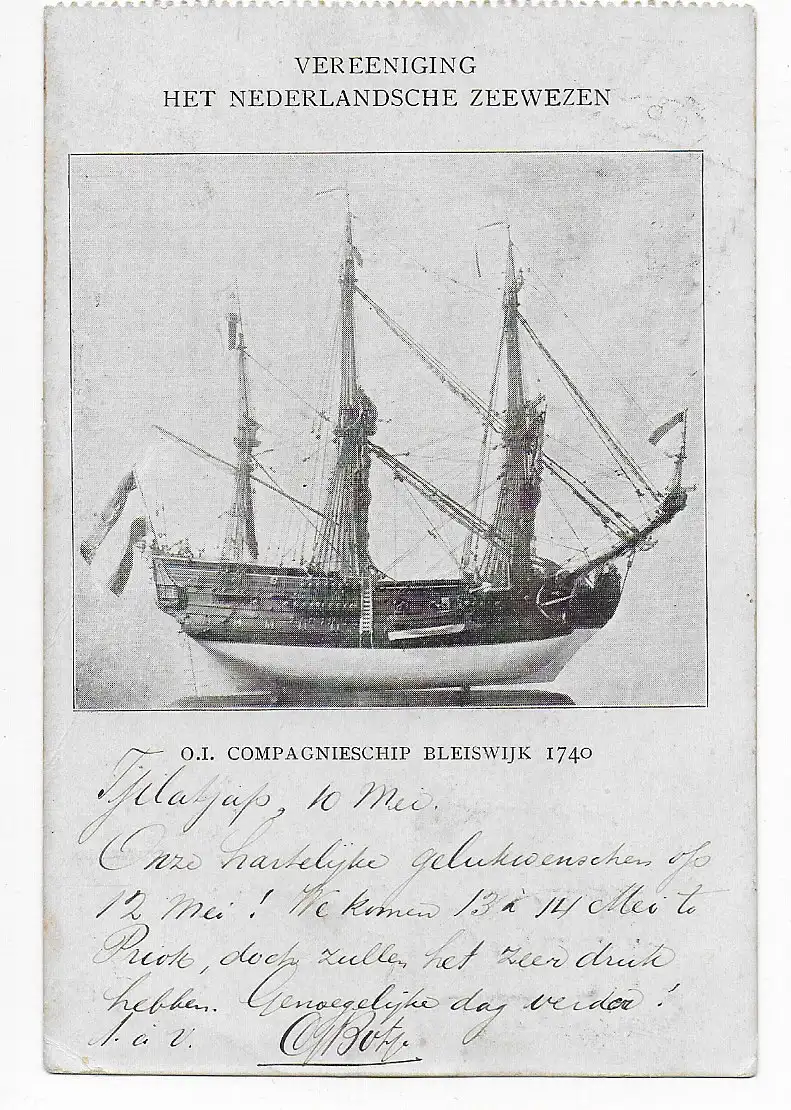 VEREENIGING
HET NEDERLANDSCHE ZEEWEZEN
O.I. COMPAGNIESCHIP BLEISWIJK 1740
Tjilatjap, 10 Mei.
Onze hartelijke gelukwenschen op
12 Mei! We komen 13 à 14 Mei te
Priok, doch zullen het zeer druk
hebben. Genoegelijke dag verder!
t. à v.